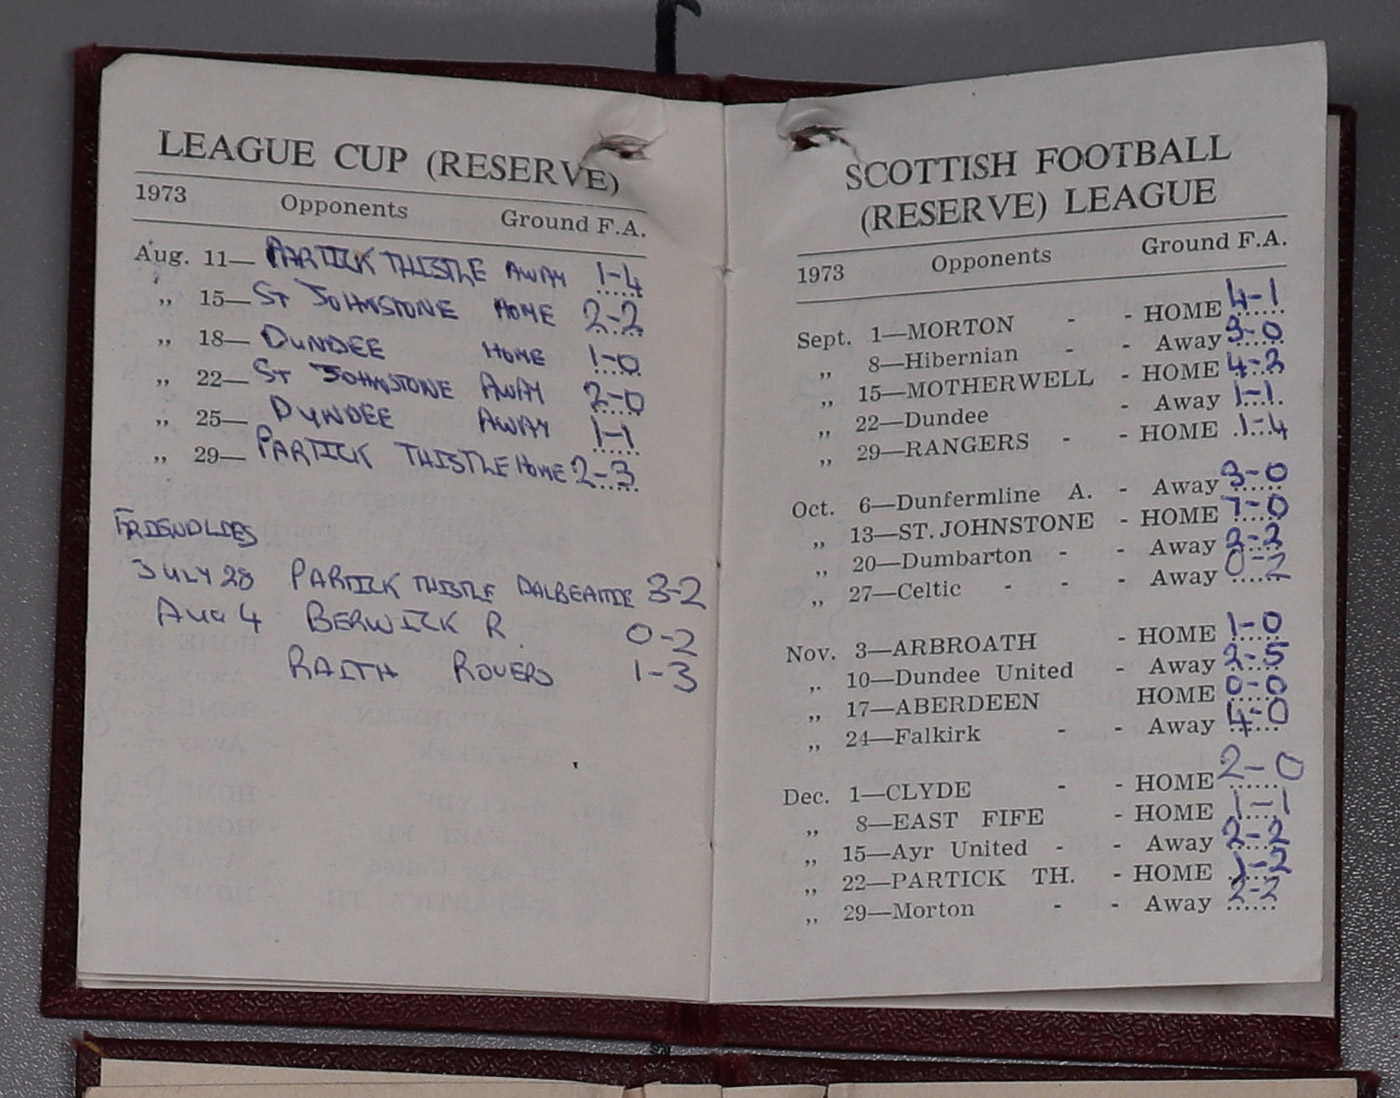 LEAGUE CUP (RESERVE)
1973 Opponents Ground F.A.
Aug. 11— PARTICK THISTLE AWAY 1-4
„ 15— ST JOHNSTONE HOME 2-2
„ 18— DUNDEE HOME 1-0
„ 22— ST JOHNSTONE AWAY 2-0
„ 25— DUNDEE AWAY 1-1
„ 29— PARTICK THISTLE HOME 2-3
FRIENDLIES
JULY 28 PARTICK THISTLE DALBEATTIE 3-2
AUG 4 BERWICK R. 0-2
RAITH ROVERS 1-3
SCOTTISH FOOTBALL
(RESERVE) LEAGUE
1973 Opponents Ground F.A.
Sept. 1—MORTON - - HOME 4-1
„ 8—Hibernian - - Away 3-0
„ 15—MOTHERWELL - HOME 4-3
„ 22—Dundee - Away 1-1
„ 29—RANGERS - - HOME 1-4
Oct. 6—Dunfermline A. - Away 3-0
„ 13—ST. JOHNSTONE - HOME 7-0
„ 20—Dumbarton - - Away 2-2
„ 27—Celtic - - - Away 0-2
Nov. 3—ARBROATH - HOME 1-0
„ 10—Dundee United - Away 2-5
„ 17—ABERDEEN HOME 0-0
„ 24—Falkirk - - Away 4-0
Dec. 1—CLYDE - - HOME 2-0
„ 8—EAST FIFE - HOME 1-1
„ 15—Ayr United - - Away 2-2
„ 22—PARTICK TH. - HOME 1-2
„ 29—Morton - - Away 2-2